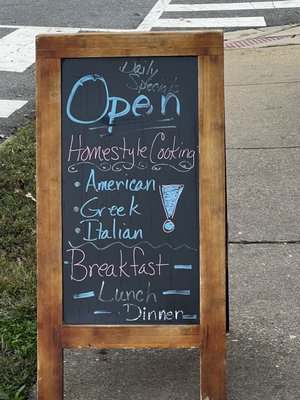 Daily
Specials
Open
Homestyle Cooking
• American
• Greek
• Italian
!
Breakfast
Lunch
Dinner